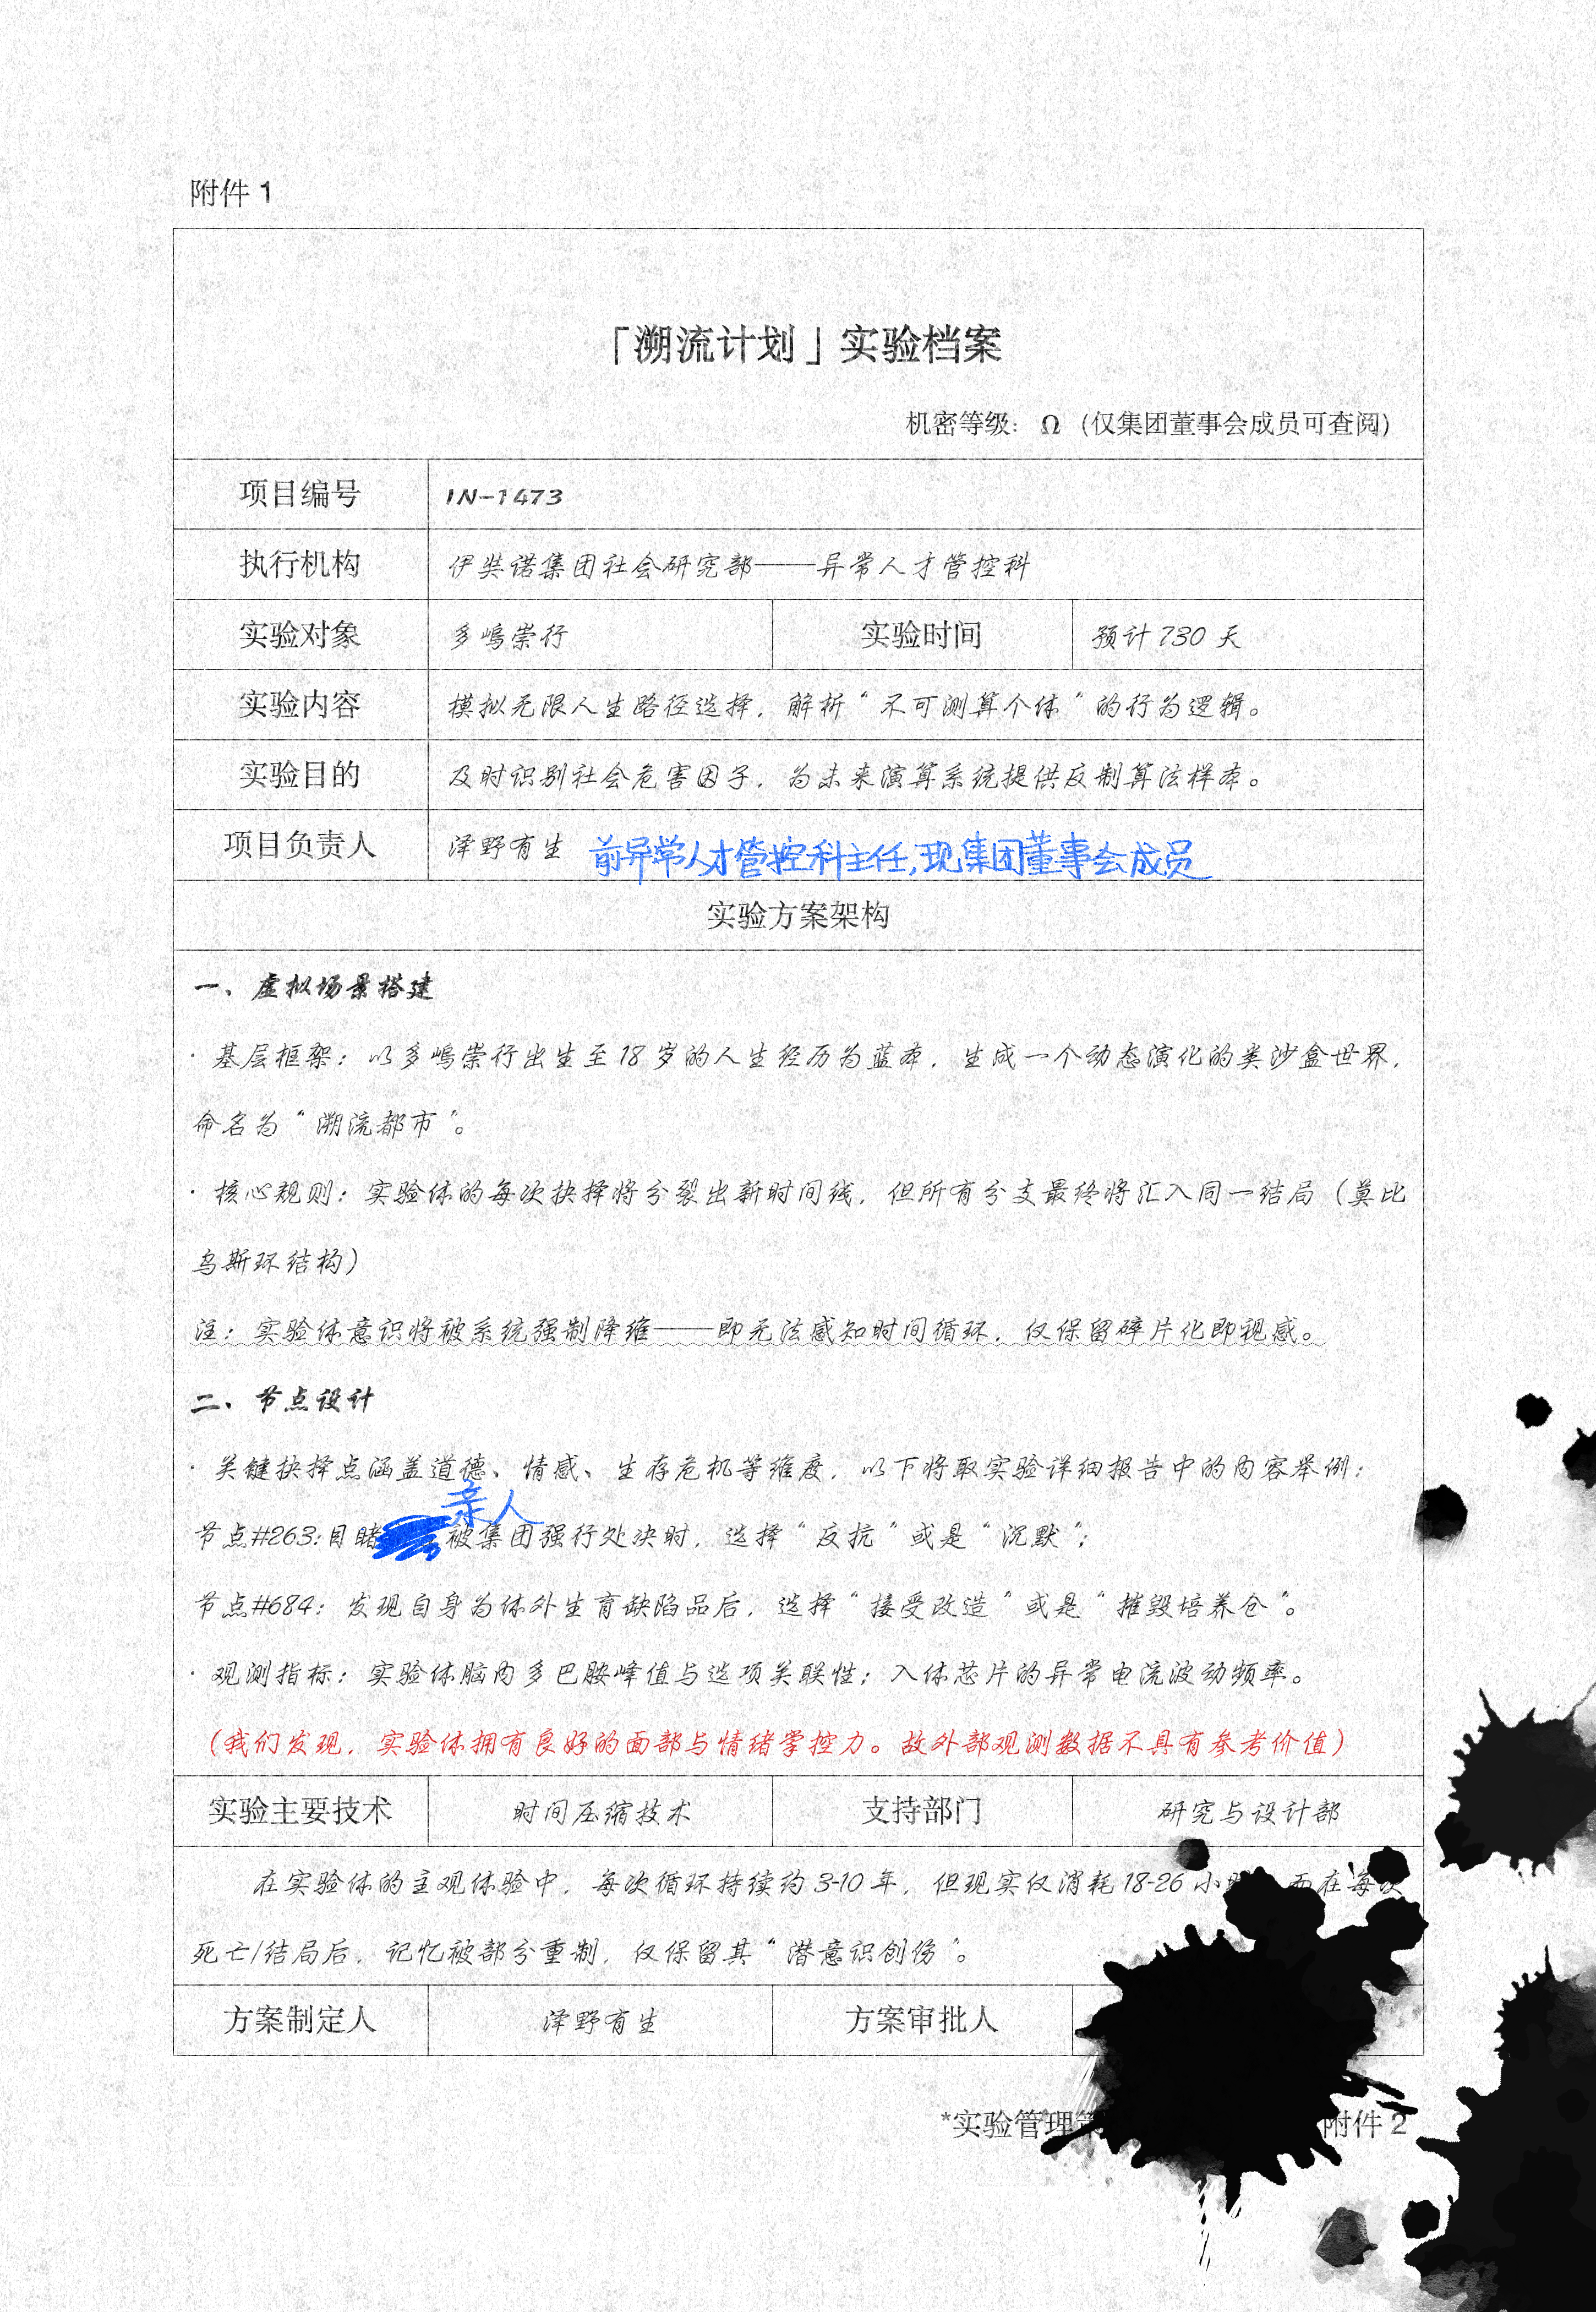 附件 1
「溯流计划」实验档案
机密等级： Ω （仅集团董事会成员可查阅）
项目编号 IN-1473
执行机构 伊奘诺集团社会研究部——异常人才管控科
实验对象 多嶋崇行 实验时间 预计 730 天
实验内容 模拟无限人生路径选择，解析“不可测算个体”的行为逻辑。
实验目的 及时识别社会危害因子，为未来演算系统提供反制算法样本。
项目负责人 泽野有生 前异常人才管控科主任,现集团董事会成员
实验方案架构
一、虚拟场景搭建
· 基层框架：以多嶋崇行出生至 18 岁的人生经历为蓝本，生成一个动态演化的类沙盒世界，
命名为“溯流都市”。
· 核心规则：实验体的每次抉择将分裂出新时间线，但所有分支最终将汇入同一结局（莫比
乌斯环结构）
注：实验体意识将被系统强制降维——即无法感知时间循环，仅保留碎片化即视感。
二、节点设计
· 关键抉择点涵盖道德、情感、生存危机等维度，以下将取实验详细报告中的内容举例：
亲人
节点#263:目睹 被集团强行处决时，选择“反抗”或是“沉默”；
节点#684：发现自身为体外生育缺陷品后，选择“接受改造”或是“摧毁培养仓”。
· 观测指标：实验体脑内多巴胺峰值与选项关联性；入体芯片的异常电流波动频率。
（我们发现，实验体拥有良好的面部与情绪掌控力。故外部观测数据不具有参考价值）
实验主要技术 时间压缩技术 支持部门 研究与设计部
在实验体的主观体验中，每次循环持续约 3-10 年，但现实仅消耗 18-26 小 在每次
死亡/结局后，记忆被部分重制，仅保留其“潜意识创伤”。
方案制定人 泽野有生 方案审批人
*实验管理 附件 2